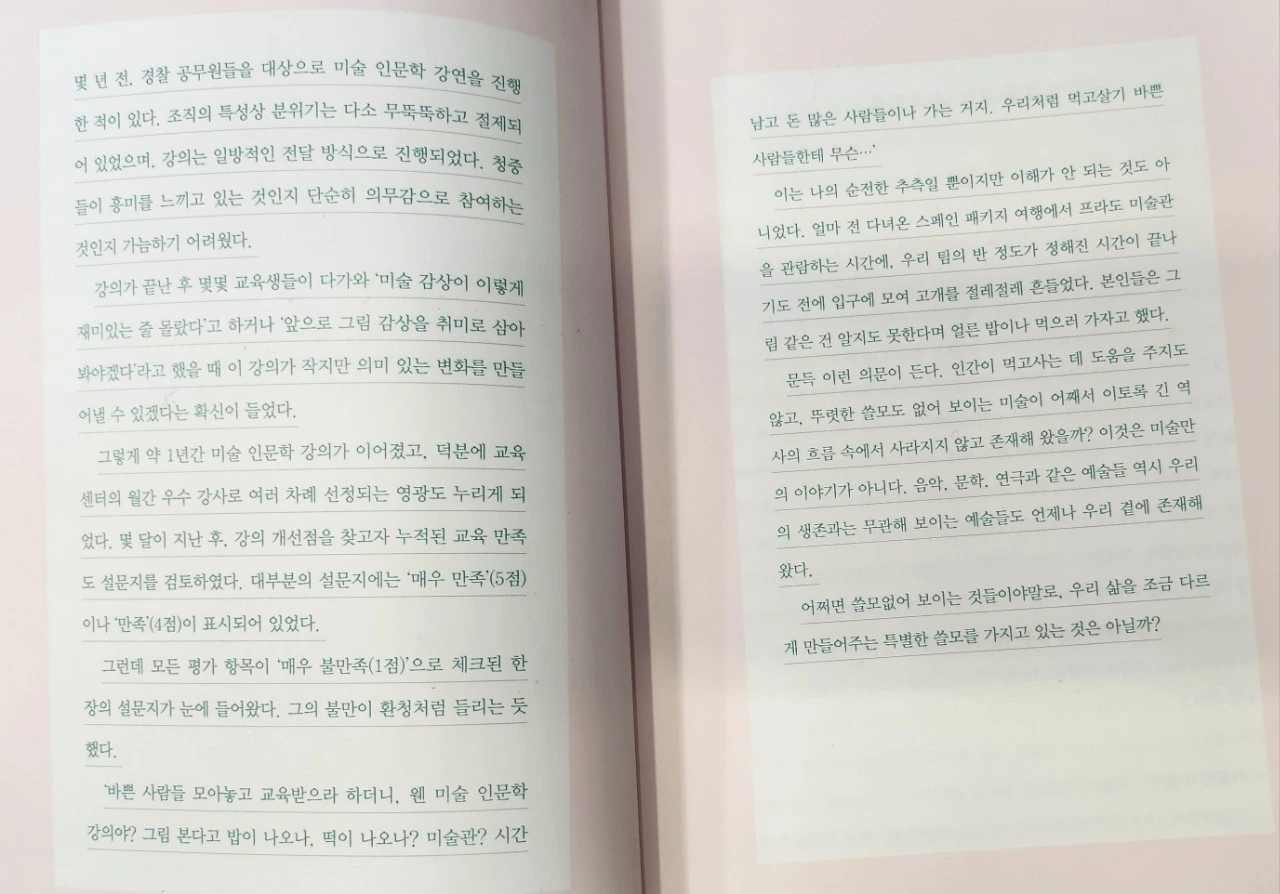 몇 년 전, 경찰 공무원들을 대상으로 미술 인문학 강연을 진행
한 적이 있다. 조직의 특성상 분위기는 다소 무뚝뚝하고 절제되
어 있었으며, 강의는 일방적인 전달 방식으로 진행되었다. 청중
들이 흥미를 느끼고 있는 것인지 단순히 의무감으로 참여하는
것인지 가늠하기 어려웠다.
강의가 끝난 후 몇몇 교육생들이 다가와 ‘미술 감상이 이렇게
재미있는 줄 몰랐다’고 하거나 ‘앞으로 그림 감상을 취미로 삼아
봐야겠다’라고 했을 때 이 강의가 작지만 의미 있는 변화를 만들
어낼 수 있겠다는 확신이 들었다.
그렇게 약 1년간 미술 인문학 강의가 이어졌고, 덕분에 교육
센터의 월간 우수 강사로 여러 차례 선정되는 영광도 누리게 되
었다. 몇 달이 지난 후, 강의 개선점을 찾고자 누적된 교육 만족
도 설문지를 검토하였다. 대부분의 설문지에는 ‘매우 만족’(5점)
이나 ‘만족’(4점)이 표시되어 있었다.
그런데 모든 평가 항목이 ‘매우 불만족(1점)’으로 체크된 한
장의 설문지가 눈에 들어왔다. 그의 불만이 환청처럼 들리는 듯
했다.
‘바쁜 사람들 모아놓고 교육받으라 하더니, 웬 미술 인문학
강의야? 그림 본다고 밥이 나오나, 떡이 나오나? 미술관? 시간
남고 돈 많은 사람들이나 가는 거지. 우리처럼 먹고살기 바쁜
사람들한테 무슨…’
이는 나의 순전한 추측일 뿐이지만 이해가 안 되는 것도 아
니었다. 얼마 전 다녀온 스페인 패키지 여행에서 프라도 미술관
을 관람하는 시간에, 우리 팀의 반 정도가 정해진 시간이 끝나
기도 전에 입구에 모여 고개를 절레절레 흔들었다. 본인들은 그
림 같은 건 알지도 못한다며 얼른 밥이나 먹으러 가자고 했다.
문득 이런 의문이 든다. 인간이 먹고사는 데 도움을 주지도
않고, 뚜렷한 쓸모도 없어 보이는 미술이 어째서 이토록 긴 역
사의 흐름 속에서 사라지지 않고 존재해 왔을까? 이것은 미술만
의 이야기가 아니다. 음악, 문학, 연극과 같은 예술들 역시 우리
의 생존과는 무관해 보이는 예술들도 언제나 우리 곁에 존재해
왔다.
어쩌면 쓸모없어 보이는 것들이야말로, 우리 삶을 조금 다르
게 만들어주는 특별한 쓸모를 가지고 있는 것은 아닐까?